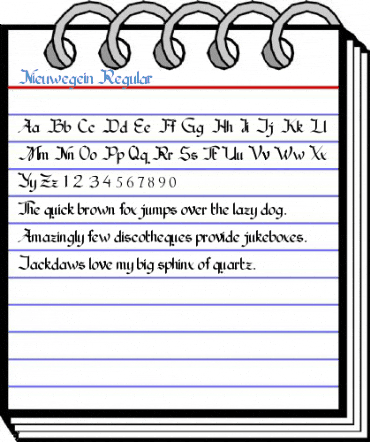 Nieuwegein Regular
Aa Bb Cc Dd Ee Ff Gg Hh Ii Jj Kk Ll
Mm Nn Oo Pp Qq Rr Ss Tt Uu Vv Ww Xx
Yy Zz 1 2 3 4 5 6 7 8 9 0
The quick brown fox jumps over the lazy dog.
Amazingly few discotheques provide jukeboxes.
Jackdaws love my big sphinx of quartz.